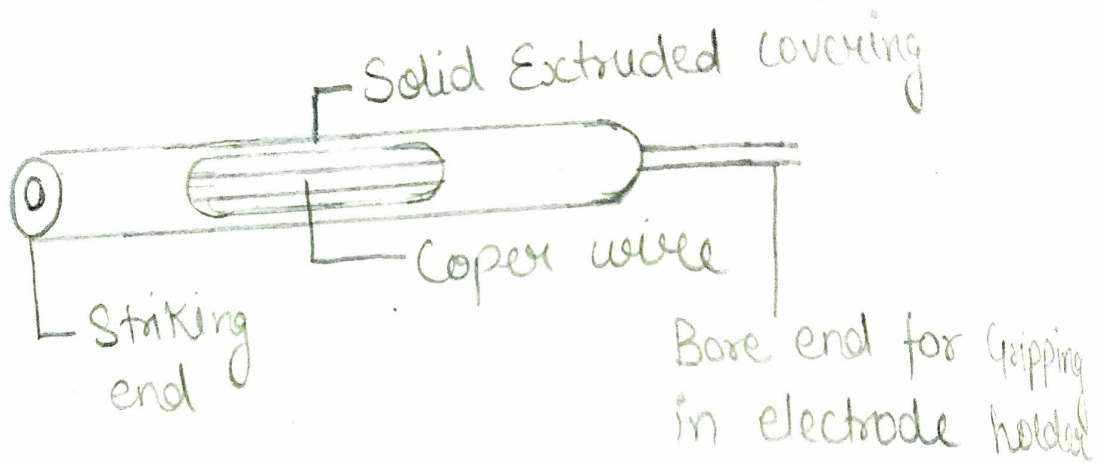 Solid Extruded covering
Coper wire
Striking
end
Bare end for Gripping
in electrode holder